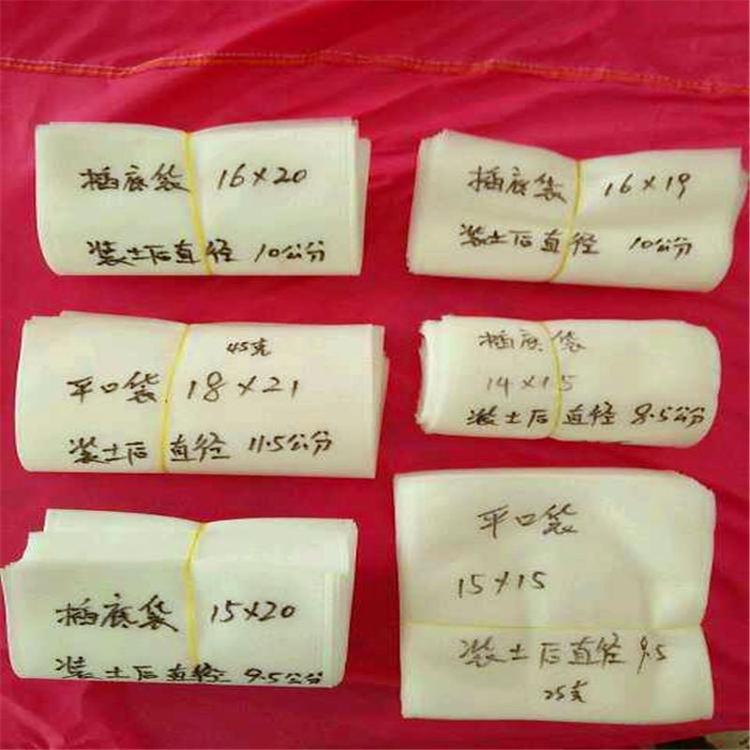 插底袋 16×20
装土后直径 10公分
插底袋 16×19
装土后直径 10公分
45克
平口袋 18×21
装土后直径 11.5公分
插底袋
14×15
装土后直径 8.5公分
插底袋 15×20
装土后直径 9.5公分
平口袋
15×15
装土后直径 9.5
25克